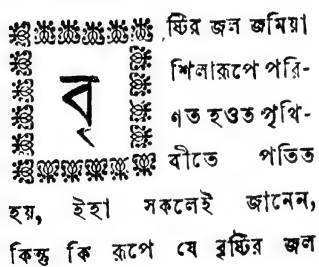 বৃষ্টির জল জমিয়া
শিলারূপে পরি-
ণত হওত পৃথি-
বীতে পতিত
হয়, ইহা সকলেই জানেন,
কিন্তু কি রূপে যে বৃষ্টির জল